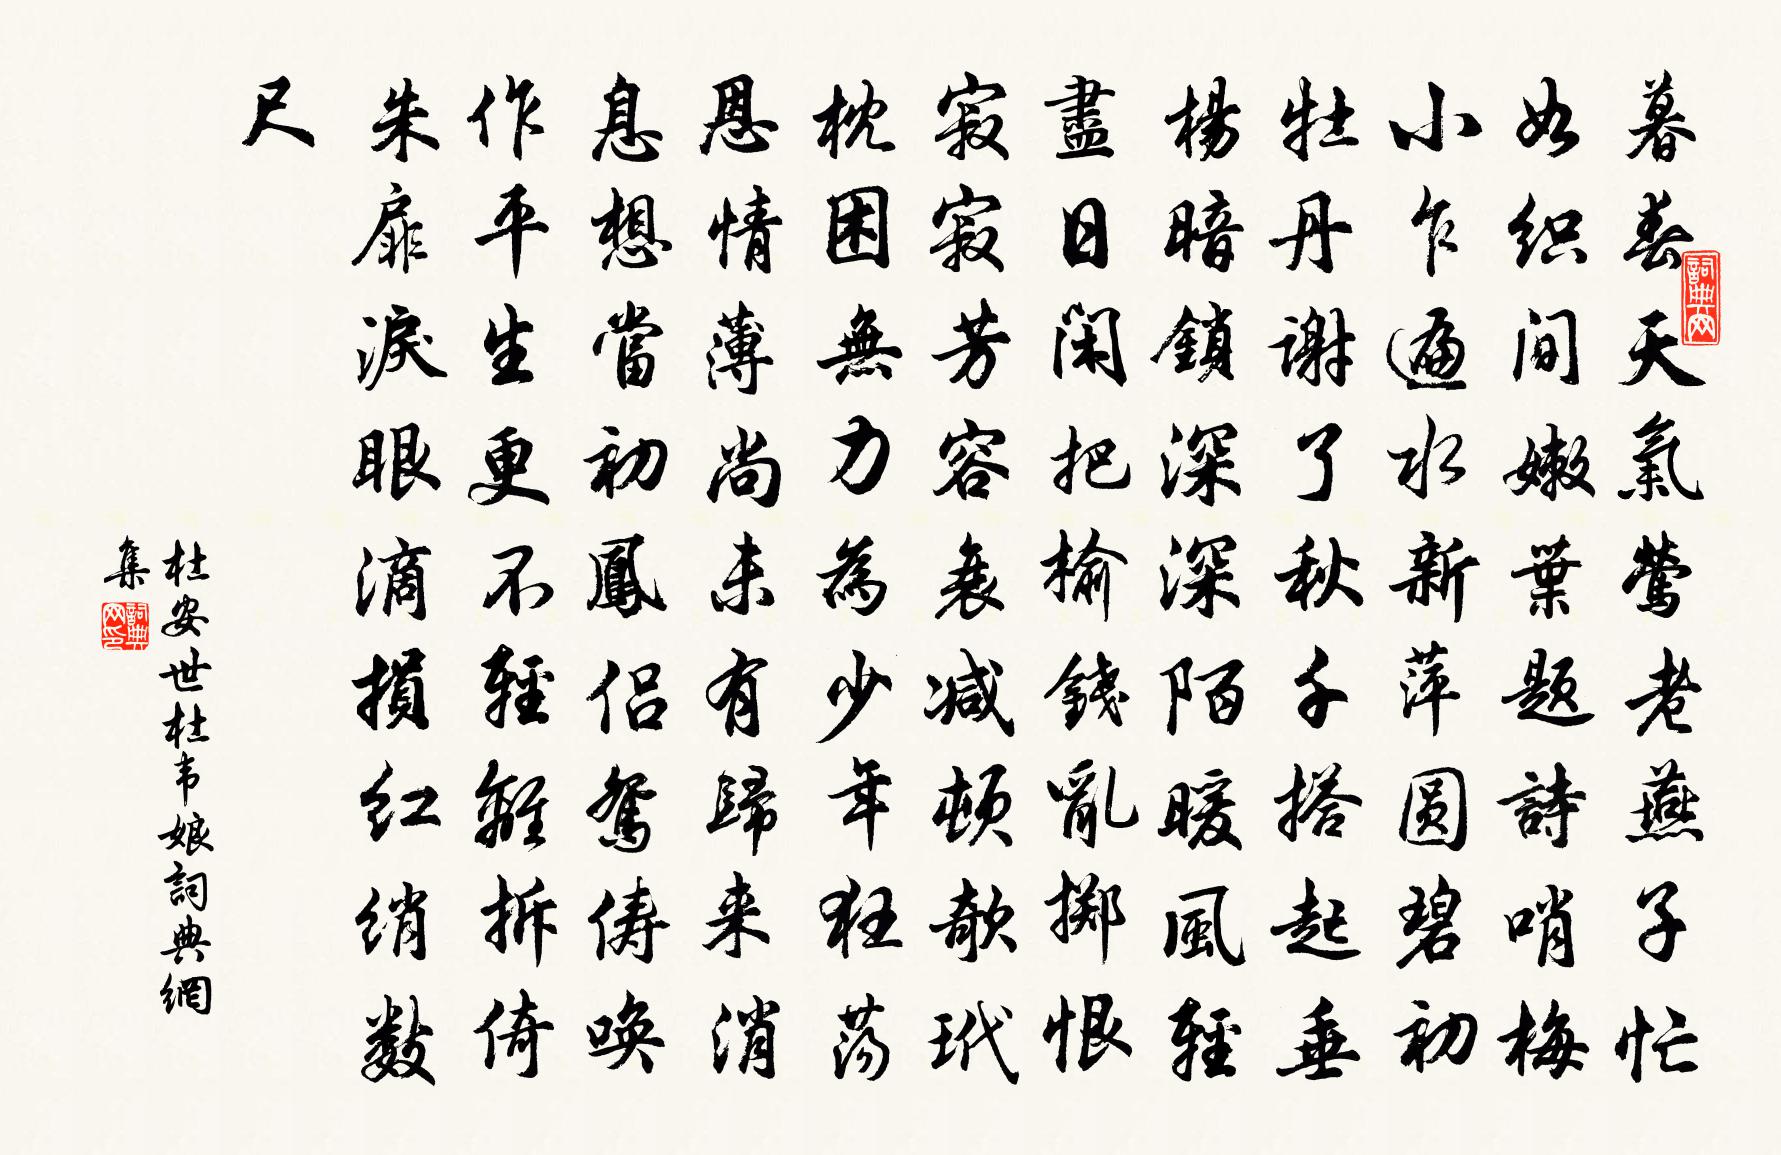 暮春天氣鶯老燕子忙
如织间嫩葉題詩哨梅
小乍遍水新萍圆碧初
牡丹谢了秋千搭起垂
楊暗鎖深深陌暖風輕
盡日闲把榆錢亂掷恨
寂寂芳容衰减顿欹玳
枕困無力為少年狂荡
恩情薄尚未有歸来消
息想當初鳳侣鸳俦唤
作平生更不輕離拆倚
朱扉淚眼滴損红绡數
尺
杜安世杜韦娘詞典網
集
詞典网
詞典网印